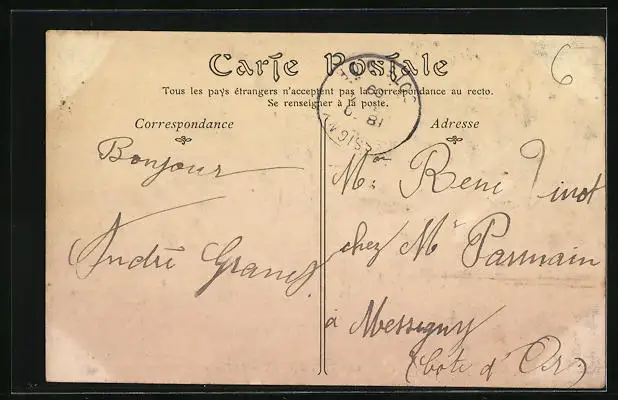 Carte Postale
Tous les pays étrangers n'acceptent pas la correspondance au recto.
Se renseigner à la poste.
Correspondance
Adresse
6
Bonjour
André
Mr René
chez Mr Parmain
à Messigny
(Cote d'Or)